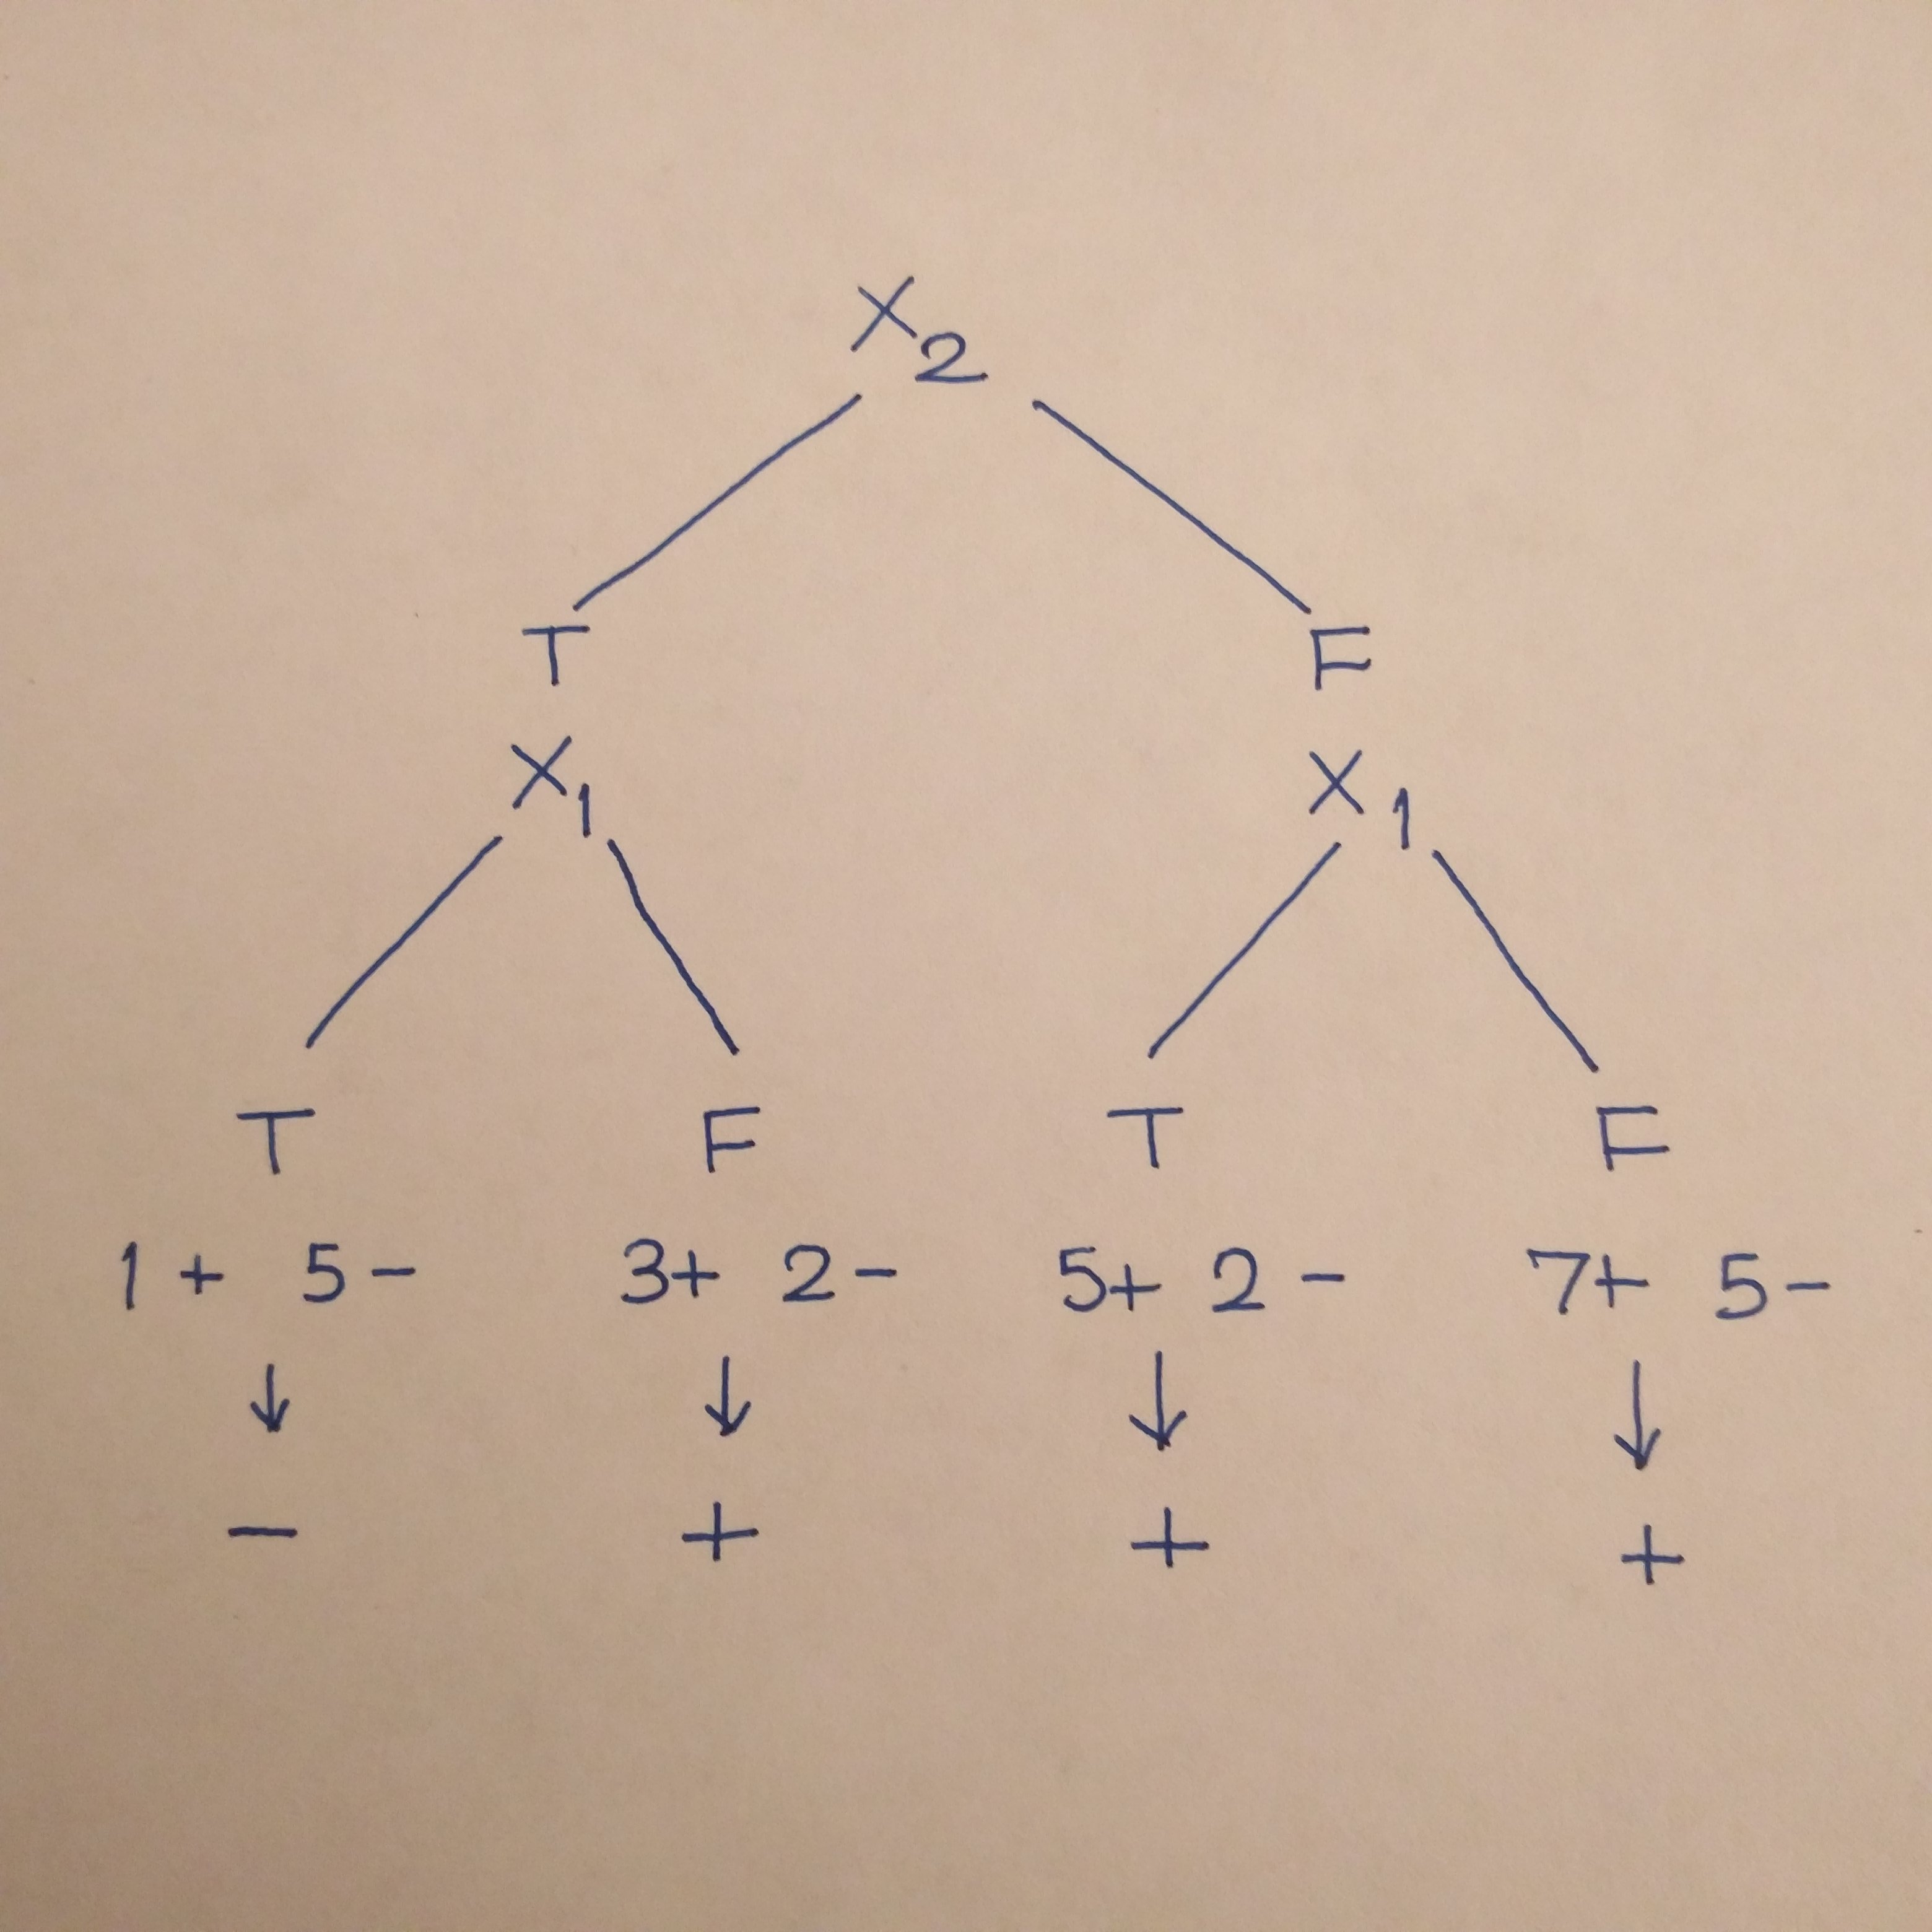 X2
T F
X1 X1
T F T F
1+ 5- 3+ 2- 5+ 2- 7+ 5-
↓ ↓ ↓ ↓
- + + +